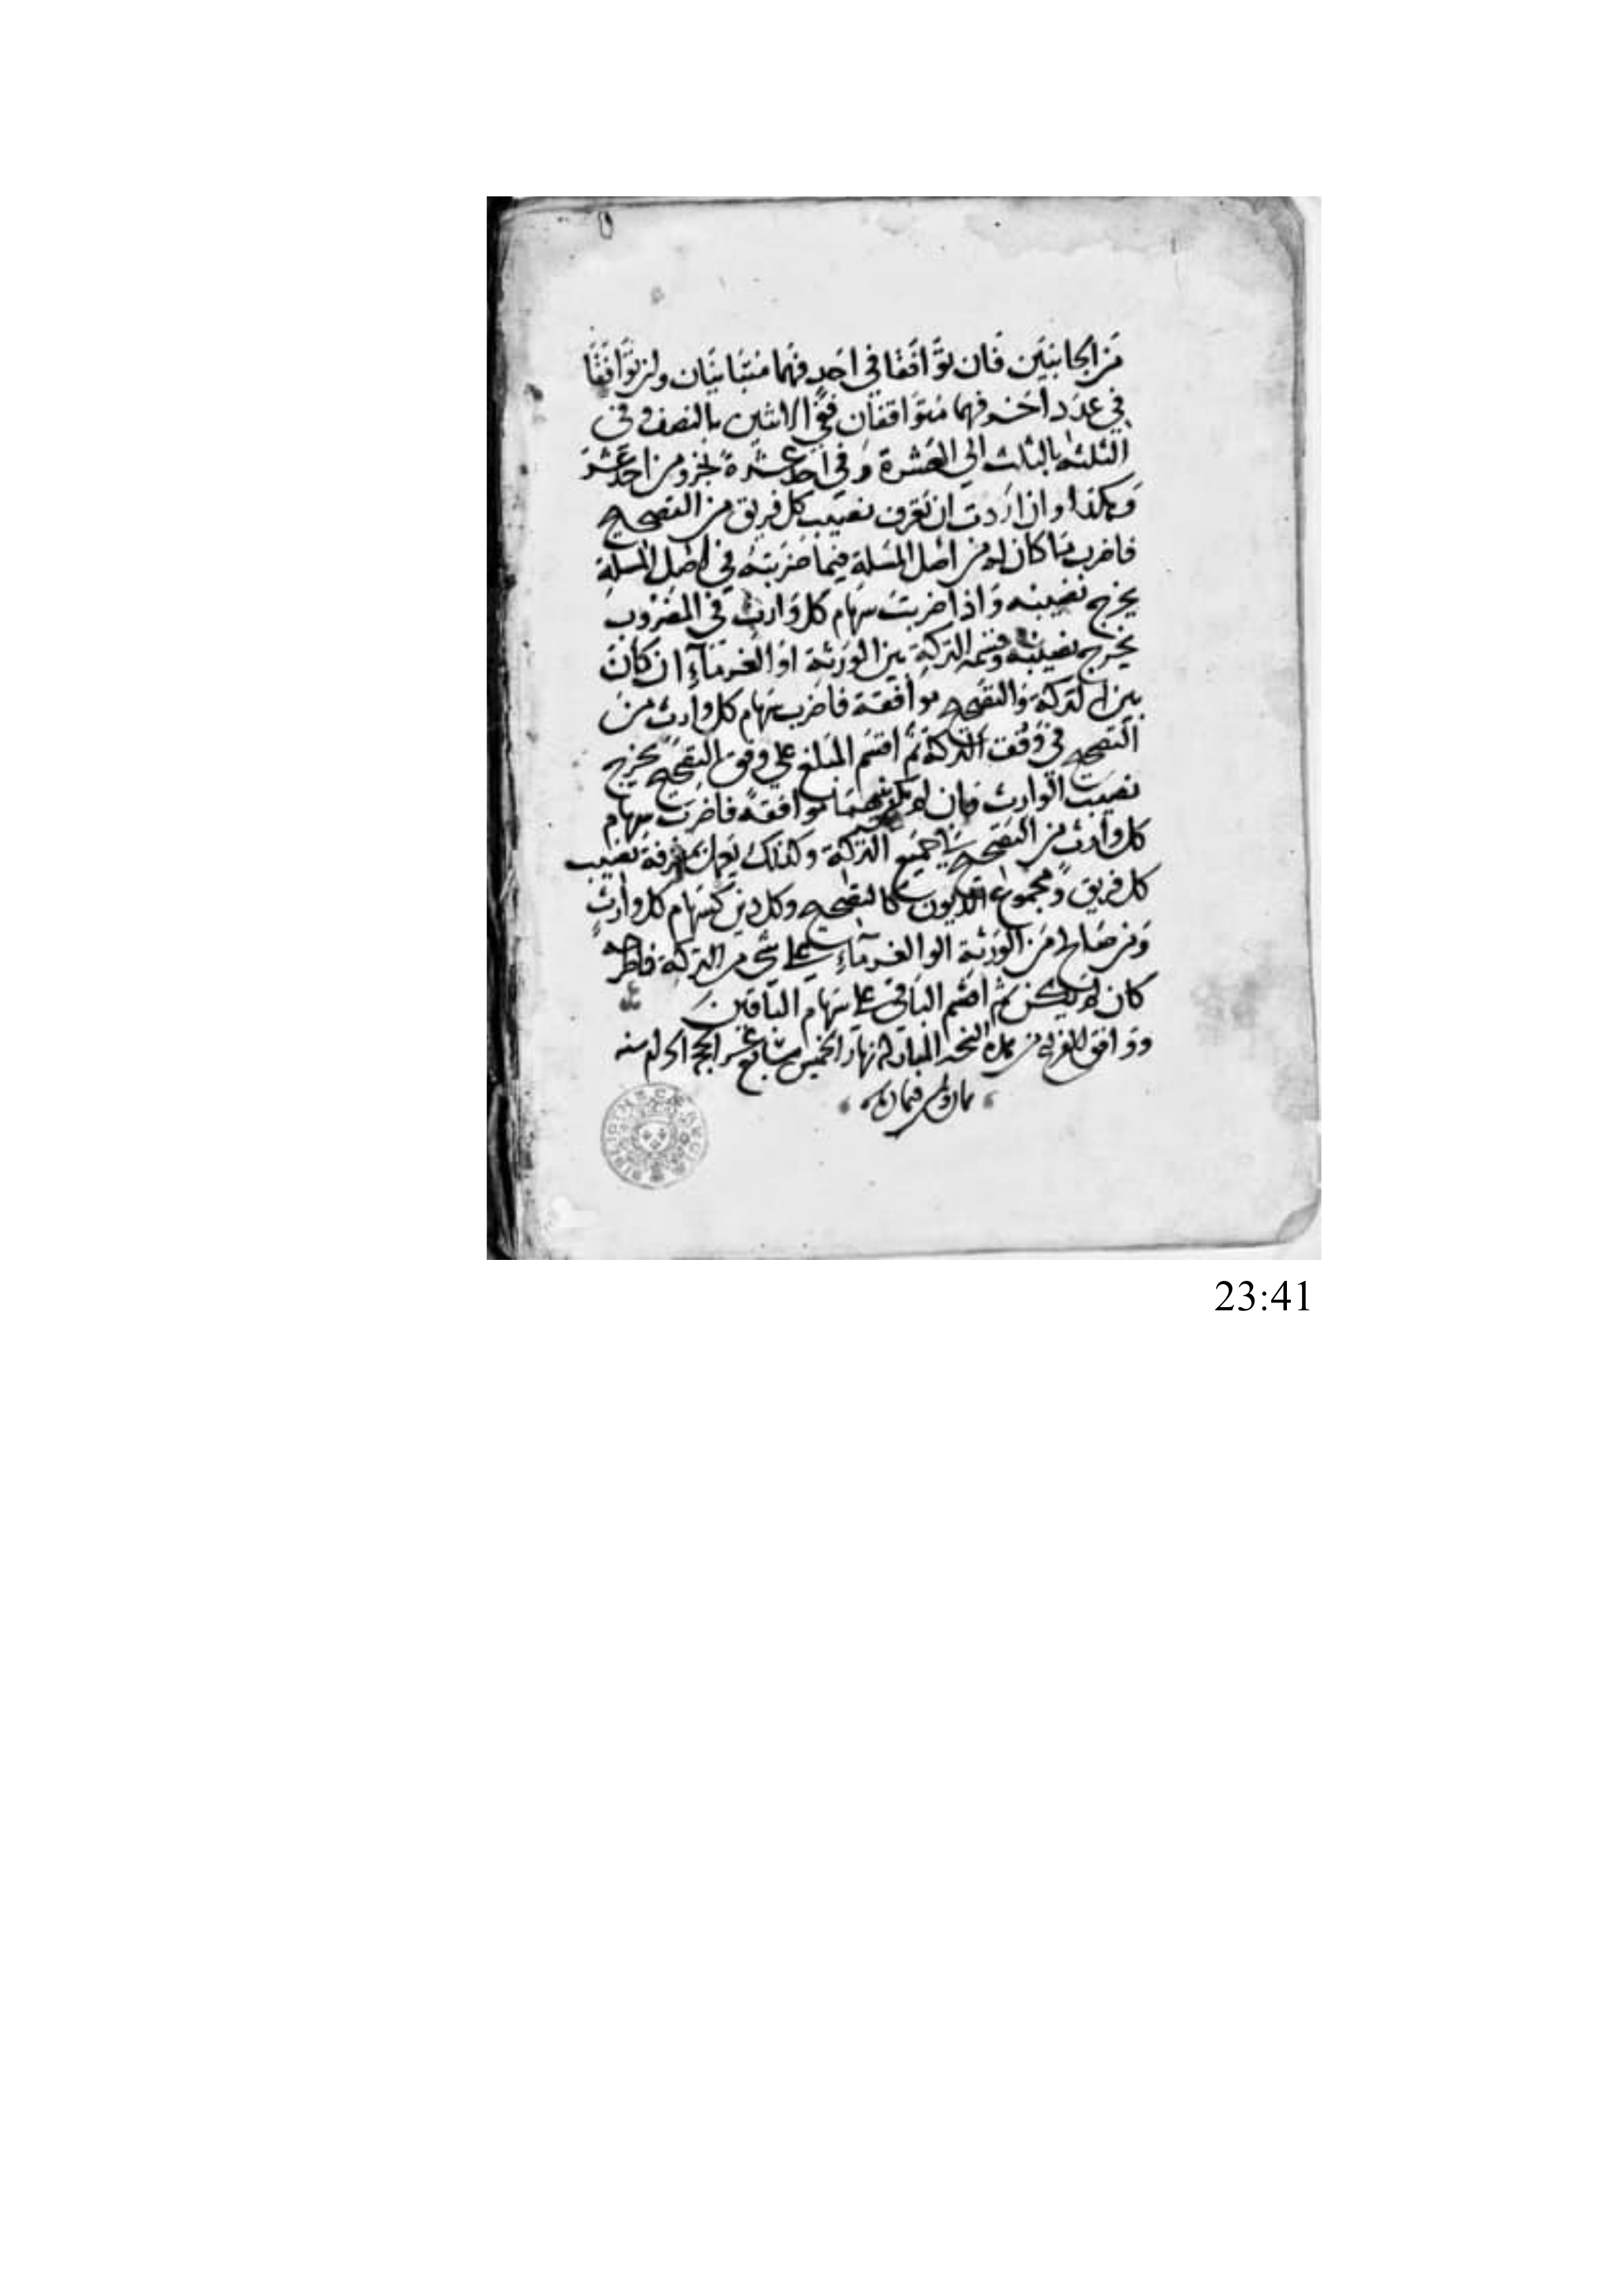 من الجانبين فان توافقا في احد فهما متباينان وان توافقا
في عدد اخر فهما متوافقان ففي الاثنين بالنصف وفي
الثلثه بالثلث الى العشرة وفي احد عشرة بجزو من احد عشر
وهكذا وان اردت ان تعرف نصيب كل فريق من التصحيح
فاضرب ما كان له من اصل المسلة فيما ضربته في اصل المسلة
يخرج نصيبه واذا ضربت سهام كل وارث في المضروب
يخرج نصيبه وقسمه التركة بين الورثة او الغرماء ان كان
بين التركة والتصحيح موافقة فاضرب سهام كل وارث من
التصحيح في وفق التركة ثم اقسم المبلغ على وفق التصحيح يخرج
نصيب الوارث فان لم يكن بينهما موافقة فاضرب سهام
كل وارث من التصحيح في جميع التركة وكذلك يعمل بمعرفة نصيب
كل فريق ومجموع الديون كالتصحيح وكل دين كسهام كل وارث
ومن صالح من الورثة او الغرماء على شي من التركة فاطرحه
كان لم يكن ثم اقسم الباقي على سهام الباقين
ووافق الفراغ من هذه النسخه المباركه نهار الخميس سابع عشر الحجه الحرام سنه
23:41